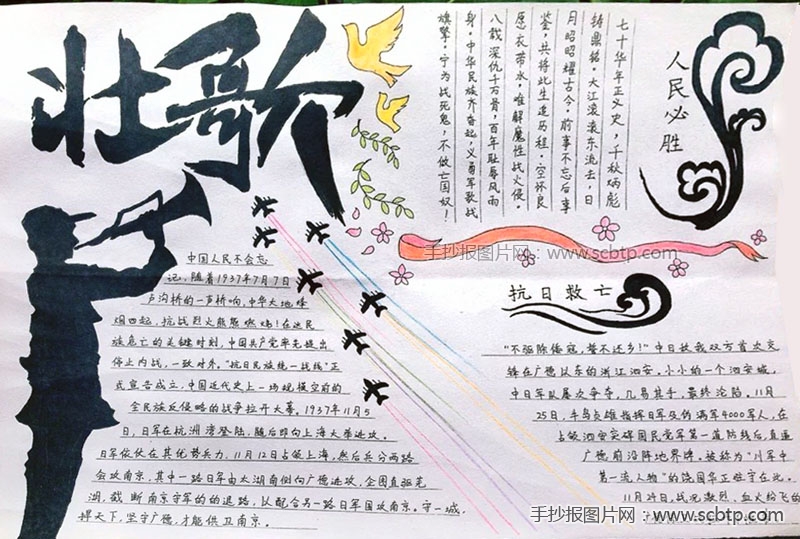 壮歌
七十华年正义史，千秋炳彪
铸鼎铭。大江滚滚东流去，日
月昭昭耀古今。前事不忘后事
鉴，共将此生造历程。空怀良
愿衣带水，难解魔性战火侵。
八载深仇千万骨，百年耻辱风雨
身。中华民族齐奋起，义勇军歌战
旗擎。宁为战死鬼，不做亡国奴！
人民必胜
手抄报图片网：www.scbtp.com
中国人民不会忘
记，随着1937年7月7日
卢沟桥的一声枪响，中华大地烽
烟四起，抗战烈火熊熊燃烧！在这民
族危亡的关键时刻，中国共产党率先提出
停止内战，一致对外。"抗日民族统一战线"正
式宣告成立，中国近代史上一场规模空前的
全民族反侵略的战争拉开大幕。1937年11月5
日，日军在杭洲湾登陆，随后即向上海大举进攻。
日军依仗在其优势兵力，11月12日占领上海，然后兵分两路
会攻南京，其中一路日军由太湖南侧向广德进攻，企图直驱芜
湖，截断南京守军的的退路，以配合另一路日军围攻南京。守一城，
捍天下，坚守广德，才能供卫南京。
抗日救亡
"不驱陈倭寇，誓不还乡！"中日敌我双方首次交
锋在广德以东的浙江泗安，小小的一个泗安城，
中日军队屡次争夺，几易其手，最终沦陷。11月
25日，牛岛贞雄指挥日军及伪满军4000军人，在
占领泗安突破国民党军第一道防线后，直逼
广德前沿阵地界牌，被称为"川军中
第一流人物"的饶国华正驻守在此。
11月29日，战况激烈，血火纷飞的
手抄报图片网：www.scbtp.com